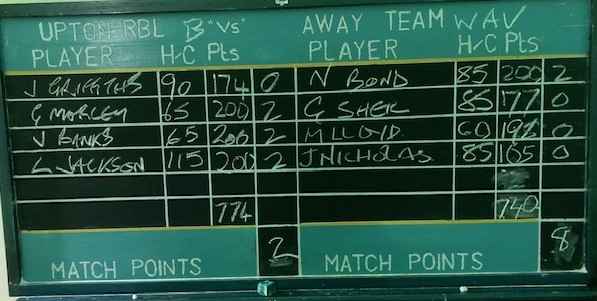 UPTON RBL B "VS" AWAY TEAM WAV
PLAYER H/C Pts PLAYER H/C Pts
J GRIFFITHS 90 174 0 N BOND 85 200 2
G MORLEY 65 200 2 G SHEK 85 177 0
V BANKS 65 200 2 M LLOYD 60 198 0
L JACKSON 115 200 2 J NICHOLAS 85 165 0
774 740
MATCH POINTS 2 MATCH POINTS 8